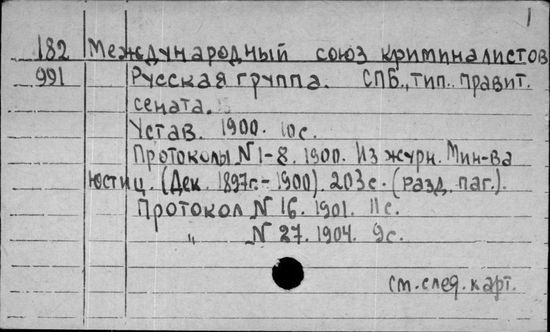 1
182 Международный союз криминалистов
991 Русская группа. СПБ., тип. правит.
сената.
Устав. 1900. 10с.
Протоколы N 1-8. 1900. Из журн. Мин-ва
юстиц. (Дек. 1897г.- 1900). 203с. (разд. паг.).
Протокол N 16. 1901. 11с.
" N 27. 1904. 9с.
см. след. карт.